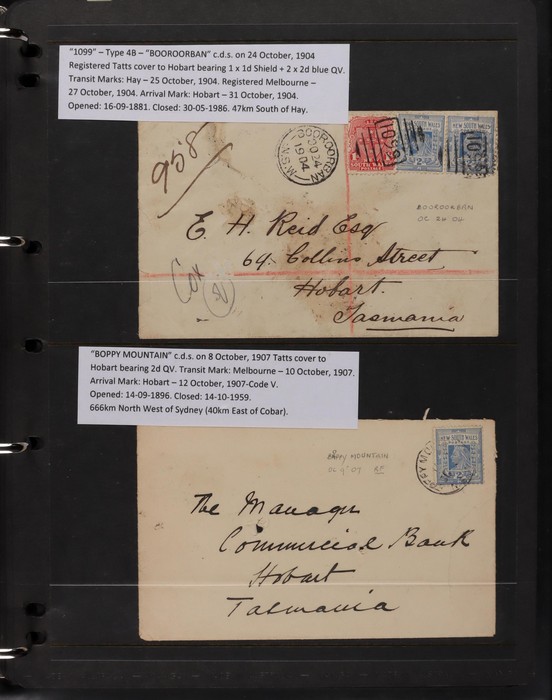 "1099" – Type 4B – "BOOROORBAN" c.d.s. on 24 October, 1904
Registered Tatts cover to Hobart bearing 1 x 1d Shield + 2 x 2d blue QV.
Transit Marks: Hay – 25 October, 1904. Registered Melbourne –
27 October, 1904. Arrival Mark: Hobart – 31 October, 1904.
Opened: 16-09-1881. Closed: 30-05-1986. 47km South of Hay.
958
BOOROORBAN
OC 24
1904
N.S.W
1099
1099
NEW SOUTH WALES
BOOROORBAN
OC 24 04
E. H. Reid Esq
69. Collins Street
Hobart.
Tasmania
Cox
"BOPPY MOUNTAIN" c.d.s. on 8 October, 1907 Tatts cover to
Hobart bearing 2d QV. Transit Mark: Melbourne – 10 October, 1907.
Arrival Mark: Hobart – 12 October, 1907-Code V.
Opened: 14-09-1896. Closed: 14-10-1959.
666km North West of Sydney (40km East of Cobar).
BOPPY MOUNTAIN
NEW SOUTH WALES
The Manager
Commercial Bank
Hobart
Tasmania